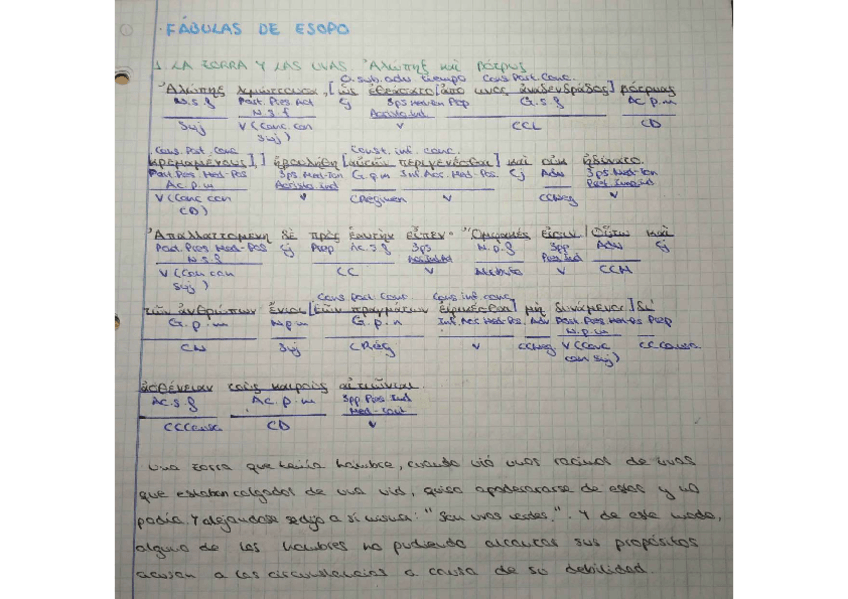 · FÁBULAS DE ESOPO
1. LA ZORRA Y LAS UVAS. Ἀλώπηξ καὶ βότρυς
O. sub. adv tiempo Cons. Part. Conc.
Ἀλώπηξ λιμώττουσα, [ὡς ἐθεάσατο [ἀπό τινος ἀναδενδράδος] βότρυας
N.S.f Part. Pres Act Cj 3ps Med-Ton Prep G.S.f Ac p.m
N.S.f Aoristo Ind
Suj V (Conc con V CCL CD
Suj)
Cons. Part. Conc Const. inf. conc.
κρεμαμένους],] ἠβουλήθη [αὐτῶν περιγενέσθαι] καὶ οὐκ ἠδύνατο.
Part. Pres. Med-Pas 3ps Med-Ton G.p.m Inf. Aor. Med-Pas. Cj Adv 3ps Med-Ton
Ac. p. m Aoristo ind
V (Conc con V CRégimen V CCNeg V
CD)
Ἀπαλλαττομένη δὲ πρὸς ἑαυτὴν εἶπεν· "Ὄμφακές εἰσιν". Οὕτω καὶ
Part. Pres Med-Pas Cj Prep Ac. S. f 3ps N.p.f 3pp Adv Cj
N.S.f Pres. Ind
V (Con con CC V Atributo V CCM
Suj)
Cons. Part. Conc. Cons. inf. conc
τῶν ἀνθρώπων ἔνιοι [τῶν πραγμάτων ἐφικέσθαι] μὴ δυνάμενοι] δι'
G. p. m N.p.m G. p. n Inf. Aor Med-Pas. Adv Part. Pres Med-Pas Prep
N. p. m
CN Suj CRég V CCNeg V (Conc CCCausa
con Suj)
ἀσθένειαν τοὺς καιροὺς αἰτιῶνται.
Ac. S. f Ac. p. m 3pp Pres Ind
CCCausa CD V
Una zorra que tenía hambre, cuando vió unos racimos de uvas
que estaban colgados de una vid, quiso apoderarse de estos y no
podía. Y alejandose se dijo a sí misma: "Son uvas verdes.". Y de este modo,
alguno de los hombres no pudiendo alcanzar sus propósitos
acusan a las circunstancias a causa de su debilidad.